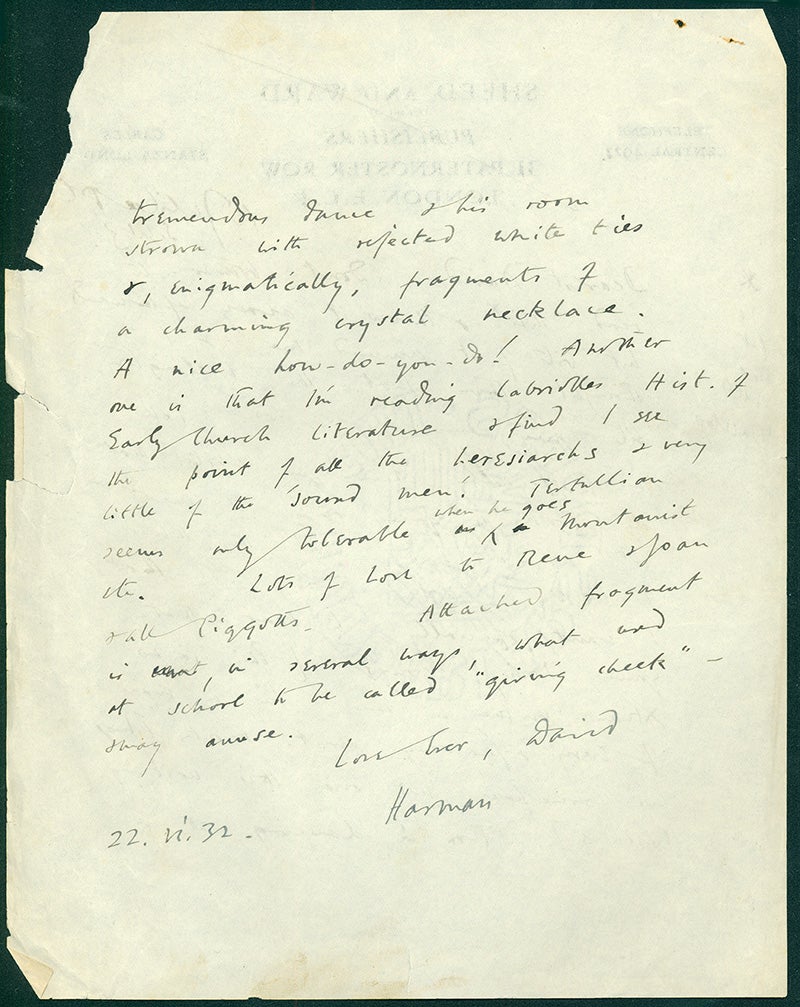 SHEED AND WARD
PUBLISHERS
31 PATERNOSTER ROW
LONDON E.C.
TELEPHONE
CENTRAL
CABLES
STANZA
tremendous dance & his room
strown with rejected white ties
&, enigmatically, fragments of
a charming crystal necklace.
A nice how-do-you-do! Another
one is that I'm reading Labriolles Hist. of
Early Church Literature & find I see
the point of all the heresiarchs & very
little of the 'sound men'. Tertullian
seems only tolerable when he goes Montanist
etc. Lots of love to Rene & Joan
& all Piggotts. Attached fragment
is, in several ways, what used
at school to be called "giving cheek" –
& may amuse.
Love Ever, David
Harman
22.VI.32.